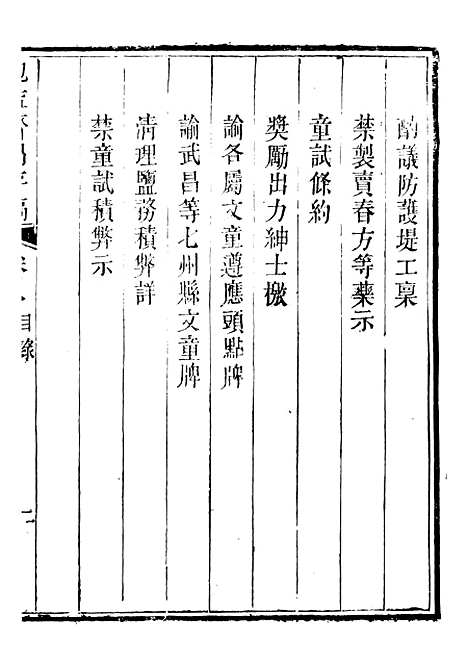 酌議防護堤工稟
禁製賣春方等藥示
童試條約
獎勵出力紳士檄
諭各屬文童遵應頭點牌
諭武昌等七州縣文童牌
清理鹽務積弊詳
禁童試積弊示
目錄